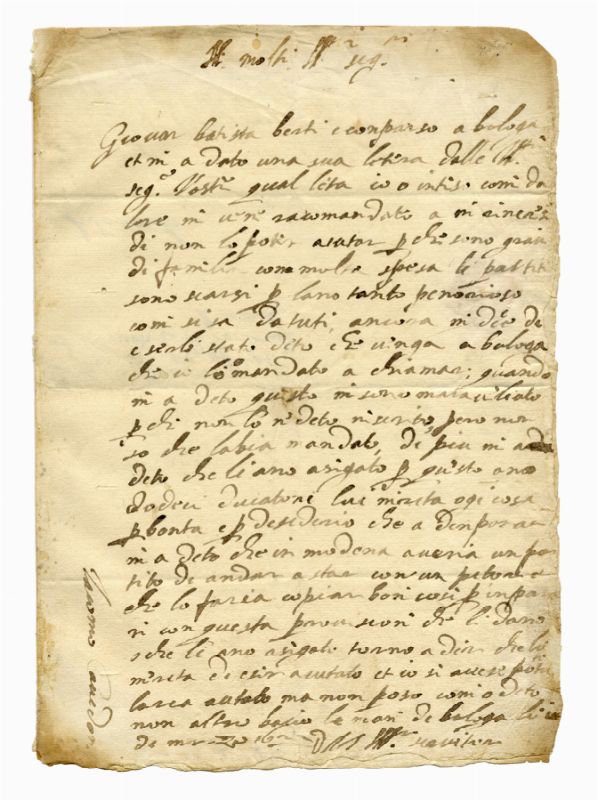 Ill. molti. Ill.re sig.ri
Giovan batista berti e conparso a bologa
et mi a dato una sua letera dalle Ill.
sig.e Vostre qual leta io o intiso comi da
lore mi viene racomandato a mi rincre
di non lo poter aiutar p che sono gravi
di familia con molta spesa li partiti
sono scarsi p lano tanto penorioso
comi si sa da tuti, ancora mi dice de
eserli stato deto che venga a bologa
che io lo mandato a chiamar; quando
mi a deto questo mi sono maraviliato
p che non lo ne deto ne scrito pero non
so che labia mandato, de piu mi a
deto che li ano asigato p questo ano
dodeci ducatone lui merita ogi cosa
p bonta e p desiderio che a dinparar
mi a deto che in modena averia un par
tito di andar a star con un pitore e
che lo faria copiar boni cosi p inpara
ri con questa provisioni che l. dano
che li ano asigato torno a dir che lo
merita de esir aiutato et io si avese potu
laria aiutato ma non poso comi o deto
non altro bacio le man de bologa li
di marzo 16 D V S Ill. servitor
Iacomo Cavedon